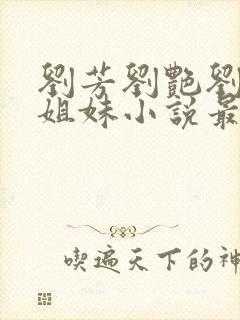 劉芳劉艷劉
姐妹小說最
喫遍天下的神